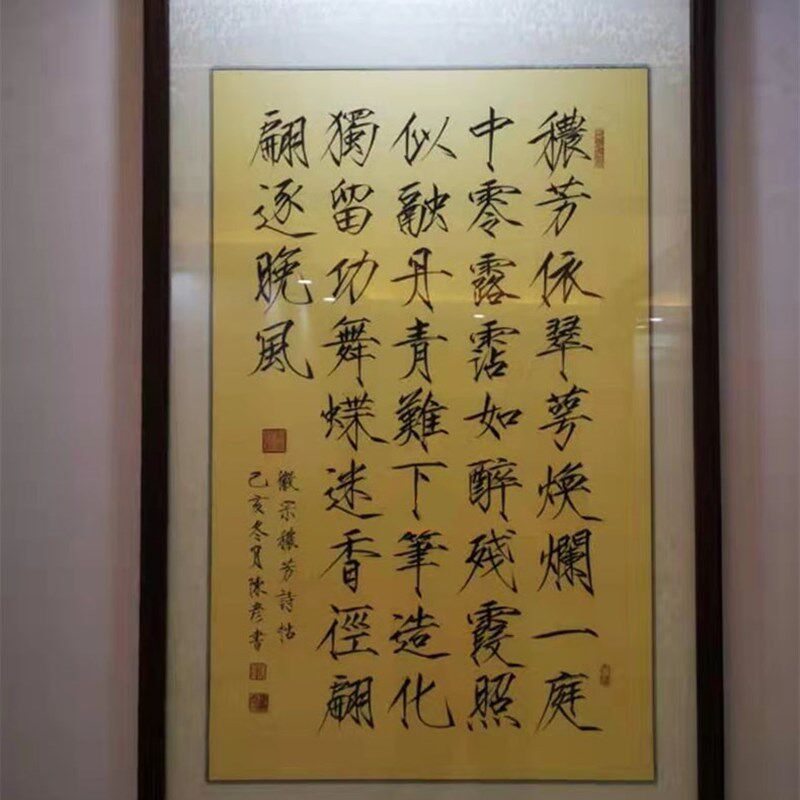 穠芳依翠萼煥爛一庭
中零露霑如醉殘霞照
似融丹青難下筆造化
獨留功舞蝶迷香徑翩
翩逐晚風
徽宗穠芳詩帖
己亥冬月陳彥書